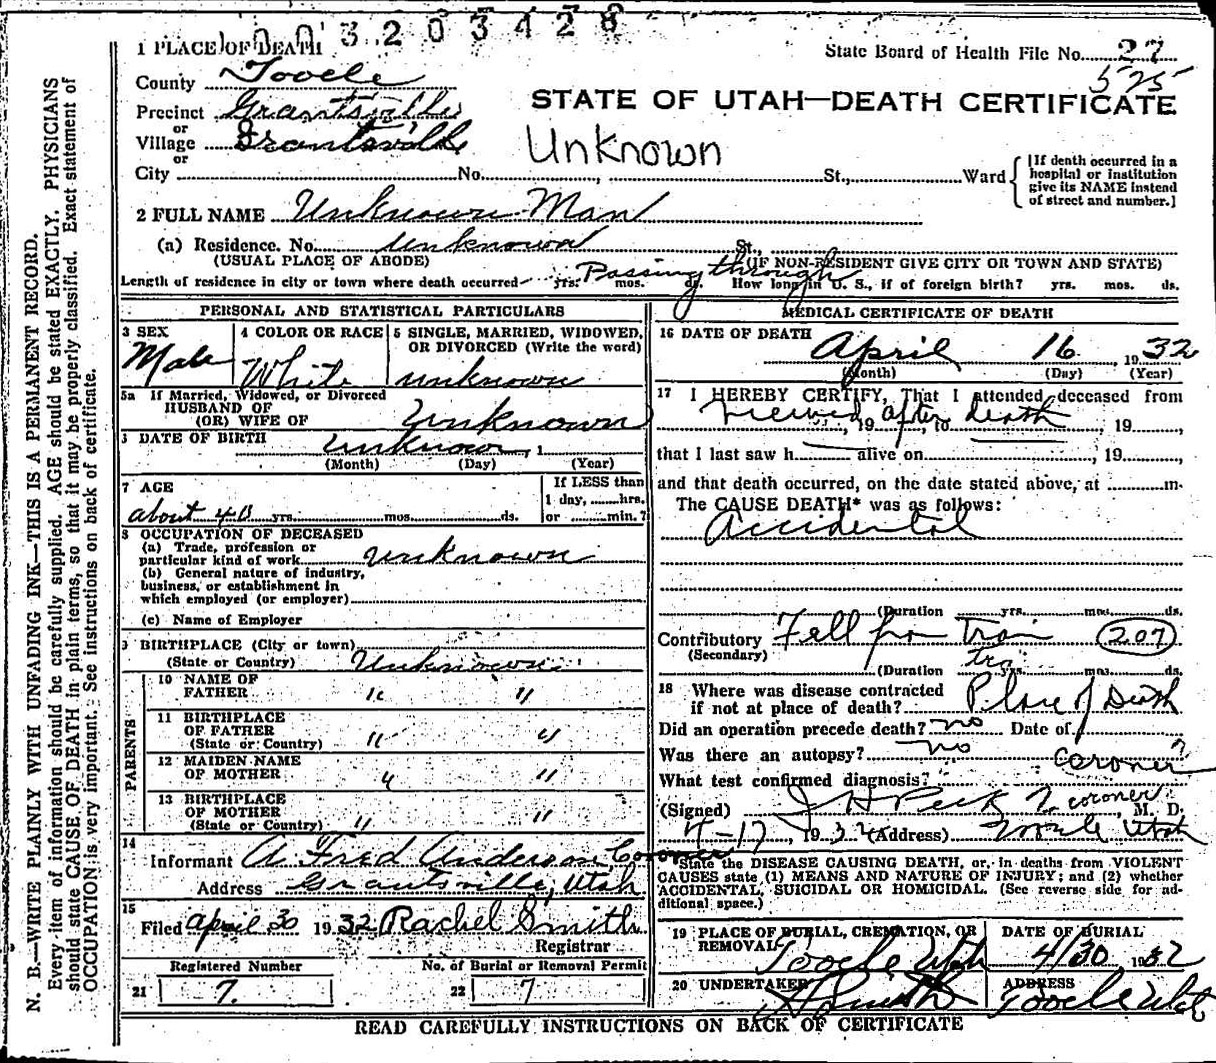 0 0 3 2 0 3 4 2 8
1 PLACE OF DEATH
State Board of Health File No. 27
575
County Tooele
STATE OF UTAH—DEATH CERTIFICATE
Precinct Grantsville
or
Village Grantsville
Unknown
or
City No. , St., Ward
[If death occurred in a hospital or institution give its NAME instead of street and number.]
2 FULL NAME Unknown Man
(a) Residence. No. unknown St.,
(USUAL PLACE OF ABODE) (IF NON-RESIDENT GIVE CITY OR TOWN AND STATE)
Length of residence in city or town where death occurred yrs. mos. ds. Passing through How long in U. S., if of foreign birth? yrs. mos. ds.
PERSONAL AND STATISTICAL PARTICULARS
3 SEX
Male
4 COLOR OR RACE
White
5 SINGLE, MARRIED, WIDOWED,
OR DIVORCED (Write the word)
unknown
5a If Married, Widowed, or Divorced
HUSBAND OF
(OR) WIFE OF Unknown
DATE OF BIRTH unknown, 1
(Month) (Day) (Year)
7 AGE
about 40 yrs. mos. ds.
If LESS than
1 day, hrs.
or min.?
8 OCCUPATION OF DECEASED
(a) Trade, profession or
particular kind of work unknown
(b) General nature of industry,
business, or establishment in
which employed (or employer)
(c) Name of Employer
BIRTHPLACE (City or town)
(State or Country) Unknown
PARENTS
10 NAME OF
FATHER " "
11 BIRTHPLACE
OF FATHER
(State or Country) " "
12 MAIDEN NAME
OF MOTHER " "
13 BIRTHPLACE
OF MOTHER
(State or Country) " "
14
Informant A Fred Anderson Coroner
Address Grantsville, Utah
15
Filed April 30 1932 Rachel Smith
Registrar
Registered Number No. of Burial or Removal Permit
21 7. 22 7
MEDICAL CERTIFICATE OF DEATH
16 DATE OF DEATH
April 16, 1932
(Month) (Day) (Year)
17 I HEREBY CERTIFY, That I attended deceased from
viewed after death, 19 , to , 19 ,
that I last saw h alive on , 19 ,
and that death occurred, on the date stated above, at m.
The CAUSE DEATH* was as follows:
accidental
(Duration yrs. mos. ds.
Contributory Fell from Train 207
(Secondary) tra
(Duration yrs. mos. ds.
18 Where was disease contracted
if not at place of death? Place of Death
Did an operation precede death? no Date of
Was there an autopsy? no
coroner?
What test confirmed diagnosis?
(Signed) J H Peck coroner, M. D.
4-17, 1932 (Address) Tooele Utah
State the DISEASE CAUSING DEATH, or, in deaths from VIOLENT
CAUSES state (1) MEANS AND NATURE OF INJURY; and (2) whether
ACCIDENTAL, SUICIDAL OR HOMICIDAL. (See reverse side for ad-
ditional space.)
19 PLACE OF BURIAL, CREMATION, OR
REMOVAL Tooele Utah
DATE OF BURIAL
4/30 1932
20 UNDERTAKER
ADDRESS
Tooele Utah
READ CAREFULLY INSTRUCTIONS ON BACK OF CERTIFICATE
N. B.—WRITE PLAINLY WITH UNFADING INK—THIS IS A PERMANENT RECORD.
Every item of information should be carefully supplied. AGE should be stated EXACTLY. PHYSICIANS
should state CAUSE OF DEATH in plain terms, so that it may be properly classified. Exact statement of
OCCUPATION is very important. See instructions on back of certificate.